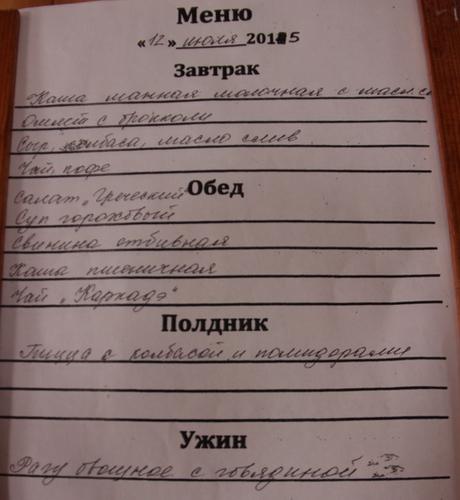 Меню
«12» июля 2015
Завтрак
Каша манная молочная с масл.сл
Омлет с брокколи
Сыр, колбаса, масло слив
Чай, кофе
Салат „Греческий"
Обед
Суп гороховый
Свинина отбивная
Каша пшеничная
Чай „Каркадэ"
Полдник
Пицца с колбасой и помидорами
Ужин
Рагу овощное с говядиной